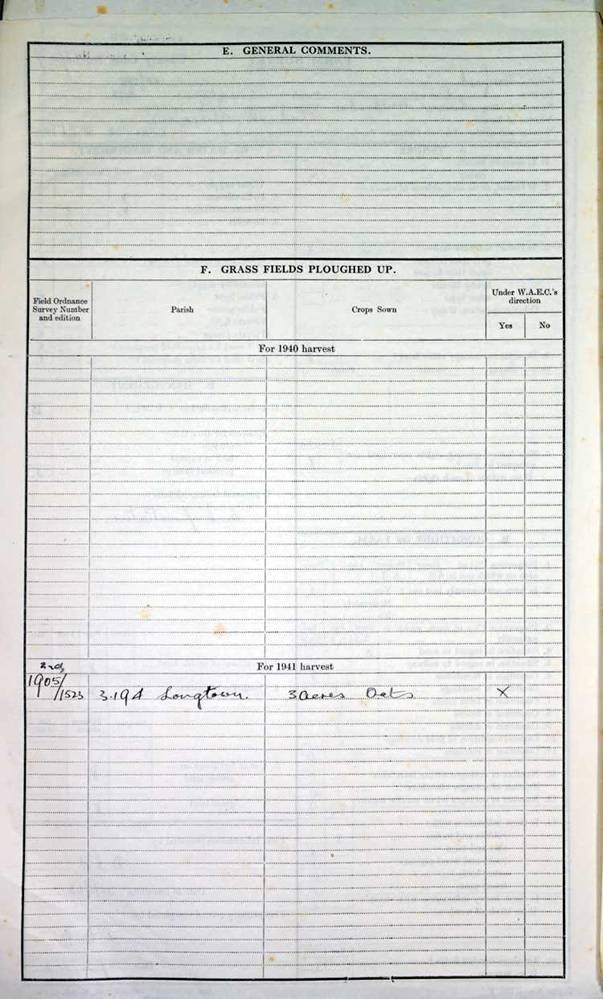 E. GENERAL COMMENTS.
F. GRASS FIELDS PLOUGHED UP.
Field Ordnance
Survey Number
and edition
Parish
Crops Sown
Under W.A.E.C.'s
direction
Yes
No
For 1940 harvest
For 1941 harvest
2nd
1905/
/1523 3.194 Longtown. 3 acres Oats X